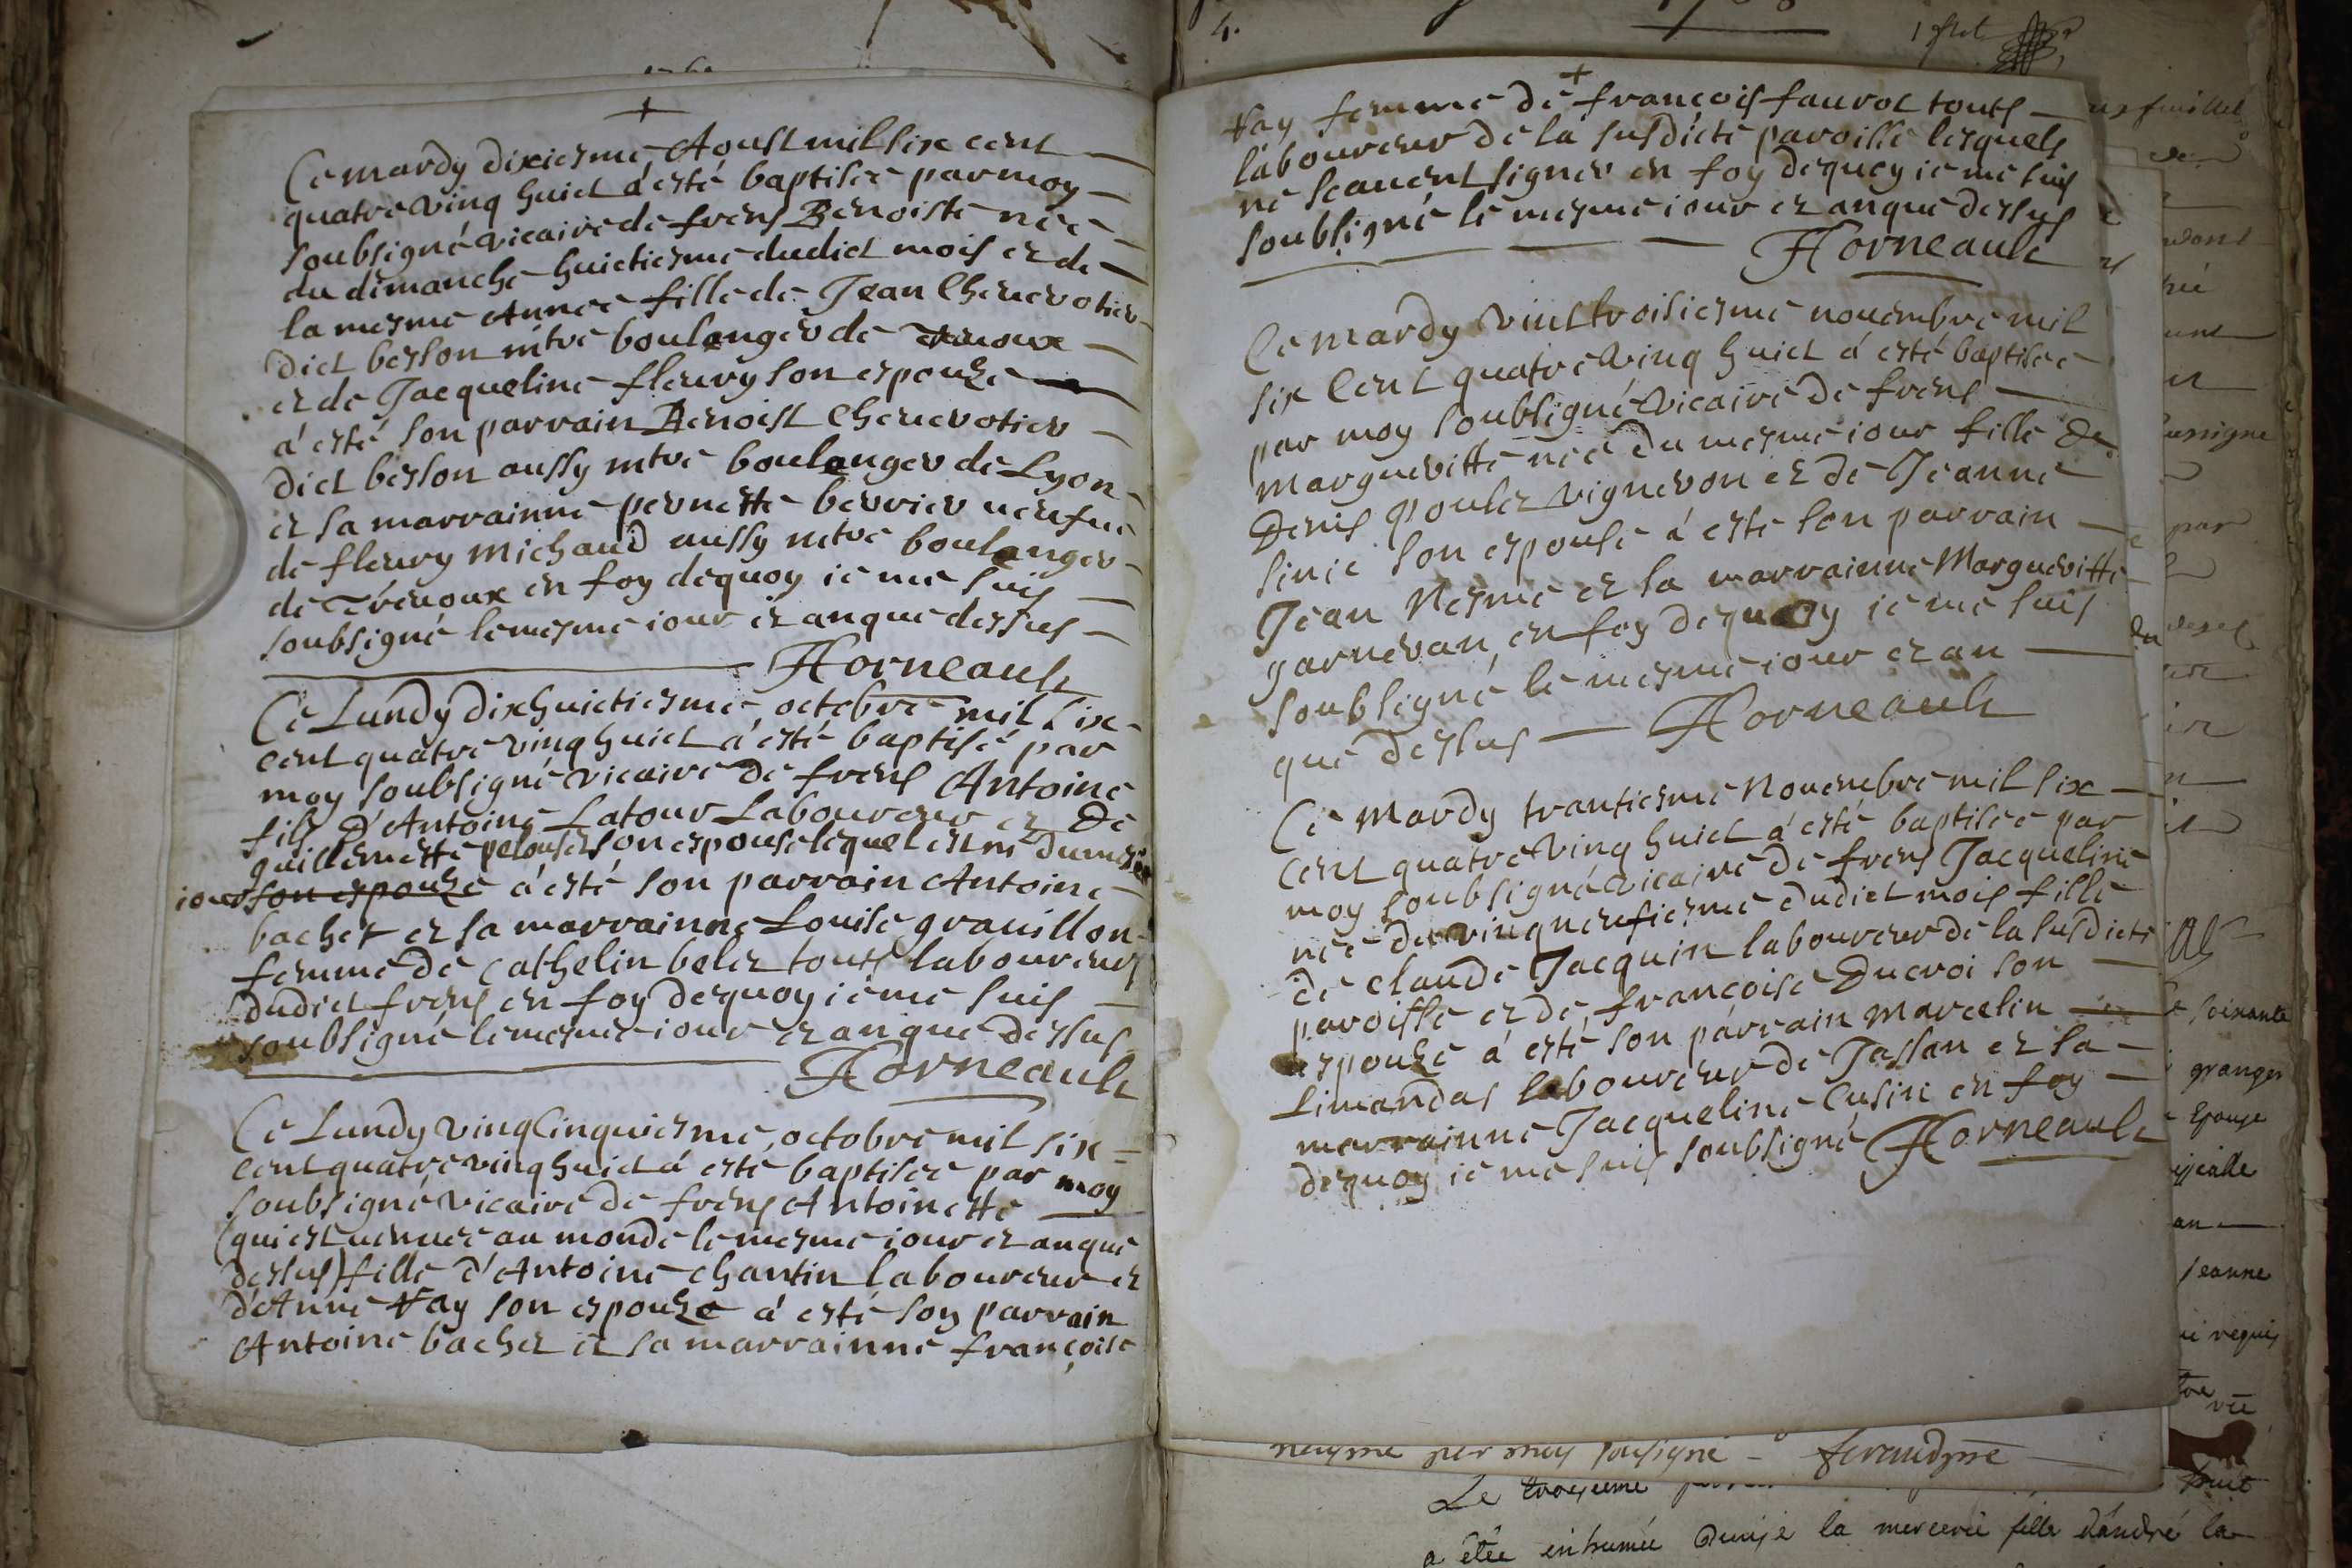 Ce mardy dixiesme Aoust mil six cent
quatre vinq huict a esté baptisée par moy
soubsigné vicaire de frens Benoiste née
du dimanche huictiesme dudict mois et de
la mesme Annee fille de Jean Chenevotier
dict besson mtre boulanger de Trevoux
et de Jacqueline fleury son espouze
a esté son parrain Benoist Chenevotier
dict besson aussy mtre boulanger de Lyon
et sa marrainne pernette berrier veufue
de fleury Michaud aussy mtre boulanger
de Trévoux en foy dequoy ie me suis
soubsigné le mesme iour et an que dessus
Horneault
Ce Lundy dixhuictiesme octobre mil six
cent quatre vinq huict a esté baptisé par
moy soubsigné vicaire de frens Antoine
fils d'Antoine Latour Laboureur et de
guillemette son espouse lequel est né du mesme
iour son espouze a esté son parrain Antoine
bachet et sa marrainne Louise grauillon
femme de Cathelin belet touts laboureurs
dudict frens en foy dequoy ie me suis
soubsigné le mesme iour et an que dessus
Horneault
Ce Lundy vinq Cinquiesme octobre mil six
cent quatre vinq huict a esté baptisée par moy
soubsigné vicaire de frens Antoinette
(qui est venuee au monde le mesme iour et an que
dessus) fille d'Antoine chantin laboureur et
d'Anne Vay son espouze a esté son parrain
Antoine bachet et sa marrainne françoise
4.
Vay femme de françois fauroc touts
laboureur de la susdicte paroisse lesquels
ne scauent signer en foy dequoy ie me suis
soubsigné le mesme iour et an que dessus
Horneault
Ce mardy vinttroisiesme nouembre mil
six Cent quatre vinq huict a esté baptisee
par moy soubsigné vicaire de frens
margueritte née du mesme iour fille de
Denis poulet vigneron et de Jeanne
sinie son espouse a esté son parrain
Jean Nesme et sa marrainne Margueritte
garnevan en foy dequoy ie me suis
soubsigné le mesme iour et an
que dessus Horneault
Ce Mardy trantiesme Nouembre mil six
cent quatre vinq huict a esté baptisée par
moy soubsigné vicaire de frens Jacqueline
née du vinq neufiesme dudict mois fille
de claude Jacquin laboureur de la susdicte
paroisse et de françoise Ducroi son
espouze a esté son parrain Marcelin
Limandas laboureur de Jassan et sa
marrainne Jacqueline Cusin en foy
dequoy ie me suis soubsigné Horneault
par moy sousigné
Le troisieme
a étée inhumée Denise la mercerie fille d'andré la
soixante
granger
Epouse
an
jeanne
requis